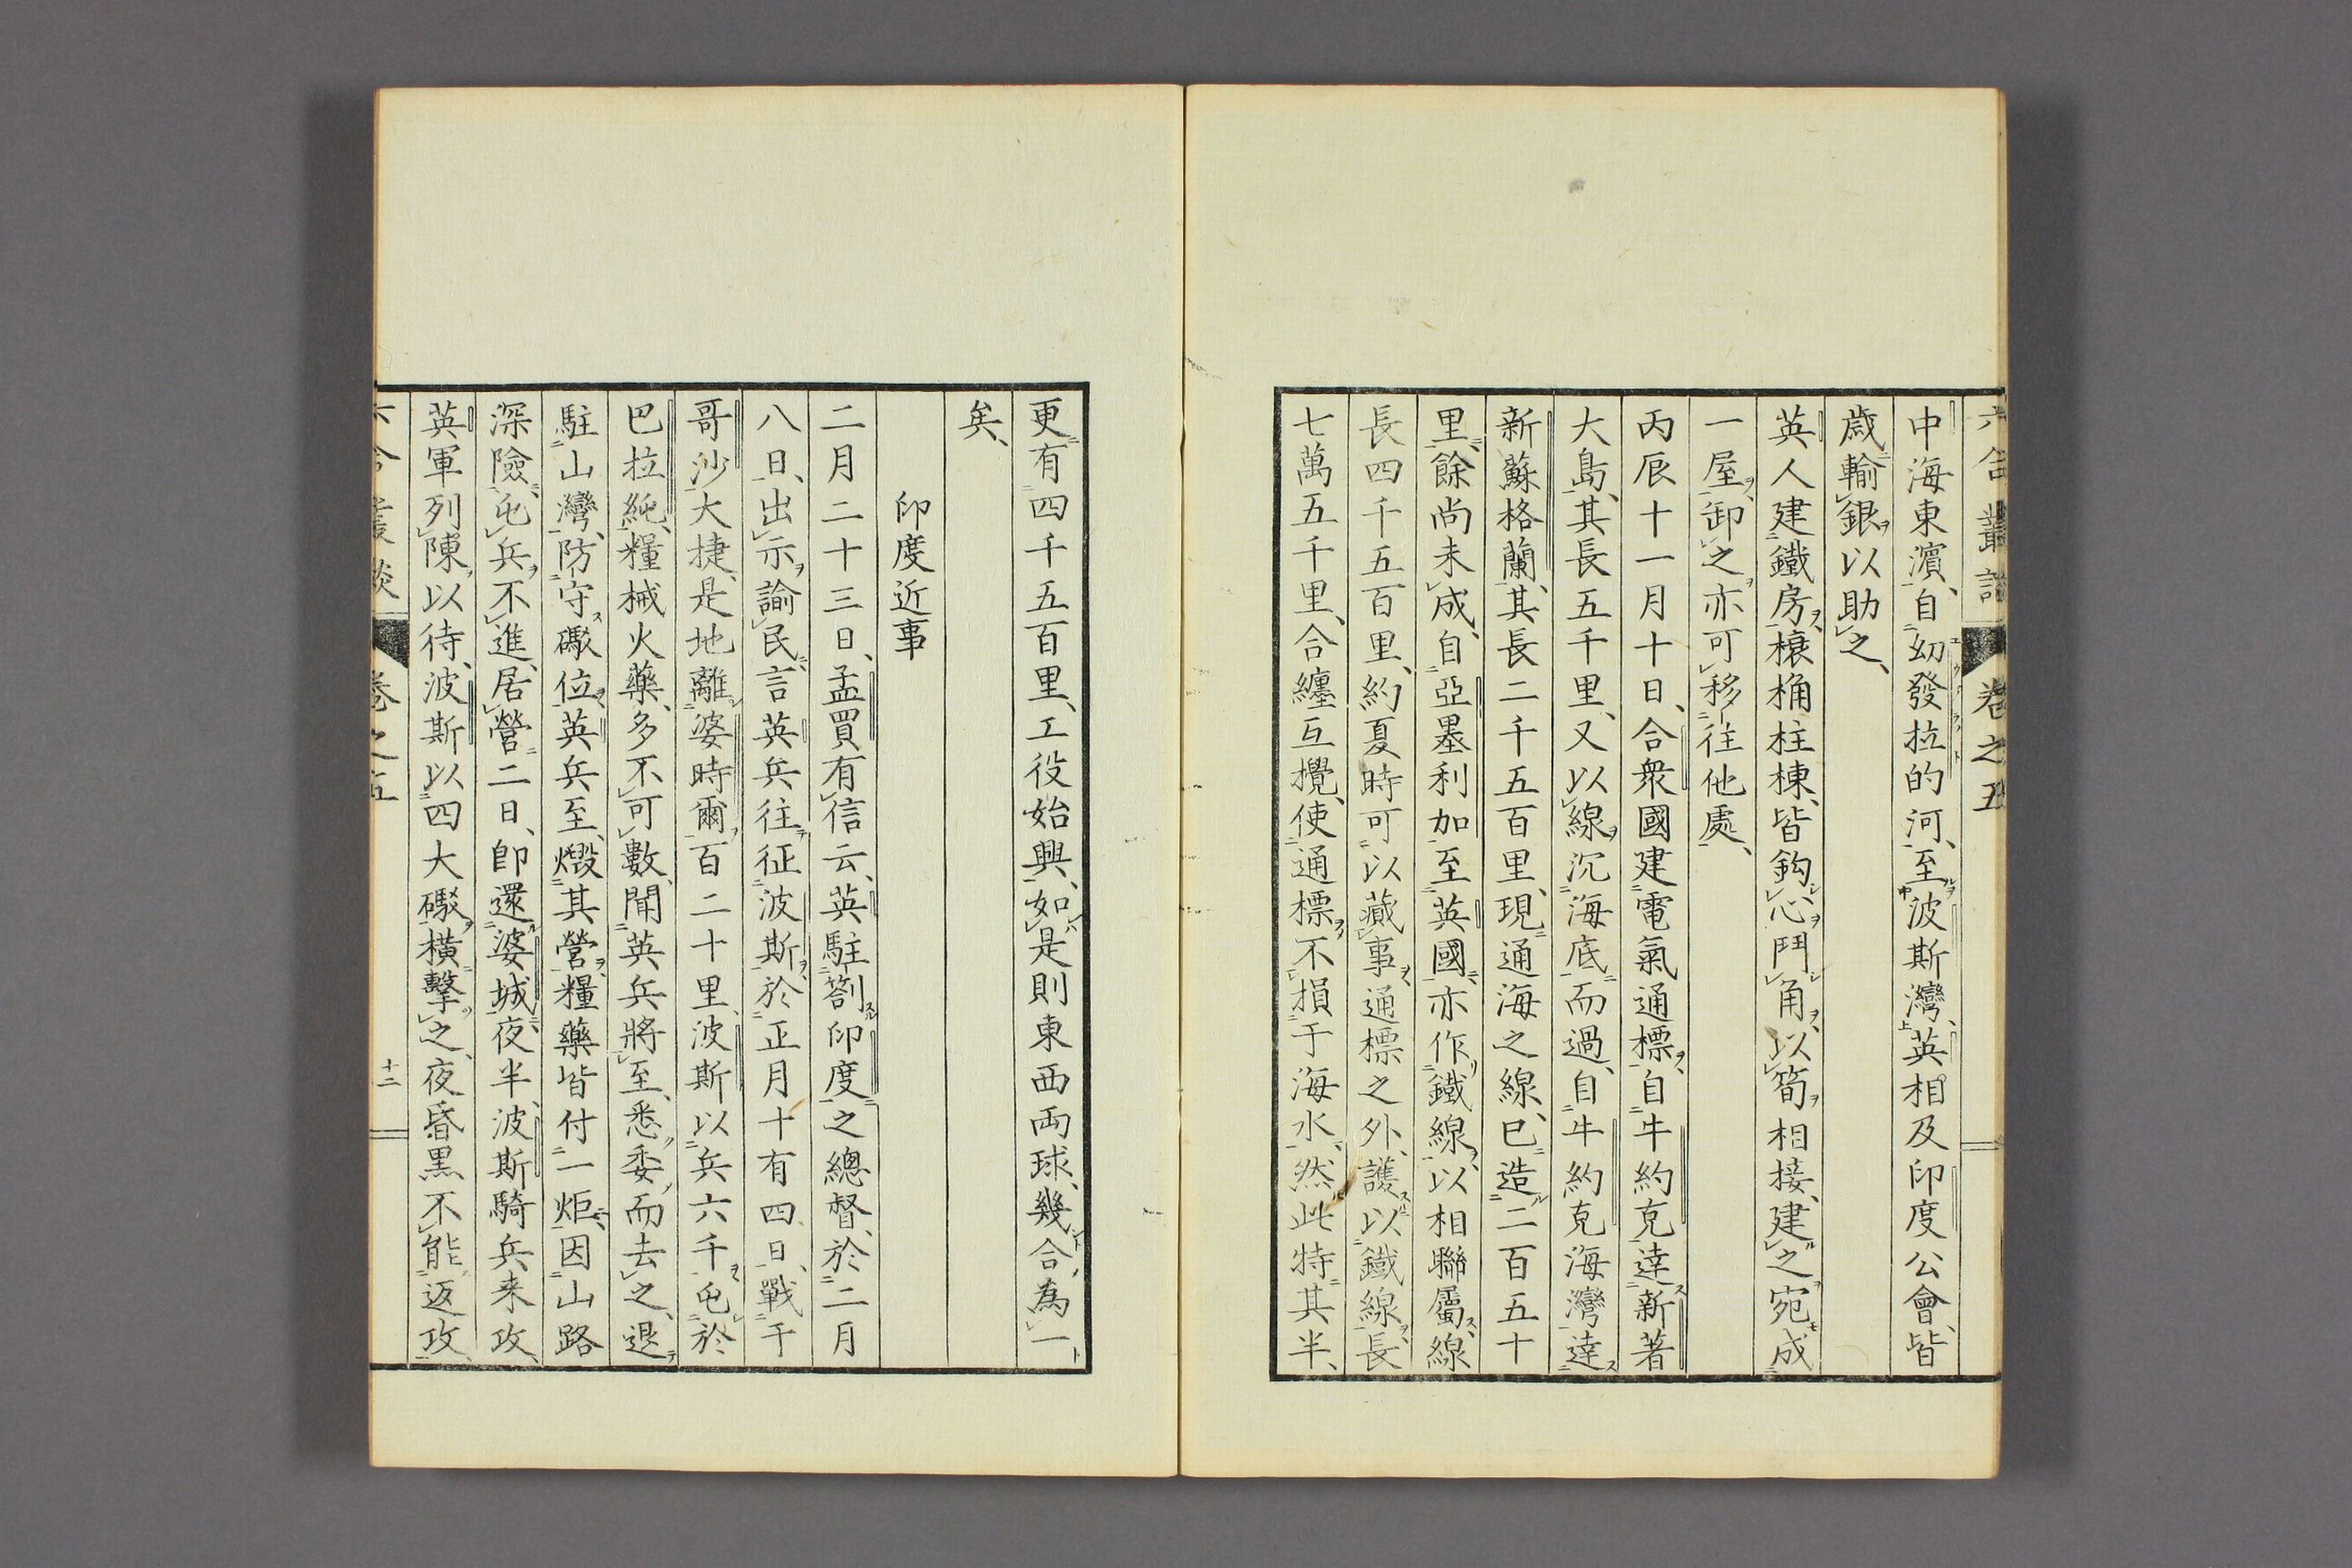 六合叢談 卷之五
中海東濵、自㓜發拉的河、至波斯灣、英相及印度公會、皆
歳輸銀以助之、
英人建鐵房、榱桷柱棟、皆鈎心鬥角、以筍相接、建之宛成
一屋、卸之亦可移往他處、
丙辰十一月十日、合衆國建電氣通標、自牛約克達新著
大島、其長五千里、又以線沉海底而過、自牛約克海灣達
新蘇格蘭、其長二千五百里、現通海之線、已造二百五十
里、餘尚未成、自亞墨利加至英國、亦作鐵線、以相聯屬、線
長四千五百里、約夏時可以藏事、通標之外、護以鐵線、長
七萬五千里、合纏互攪、使通標不損于海水、然此特其半、
更有四千五百里、工役始興、如是則東西両球、幾合為一
矣、
印度近事
二月二十三日、孟買有信云、英駐劄印度之總督、於二月
八日、出示諭民、言英兵往征波斯、於正月十有四日、戰于
哥沙大捷、是地離婆時爾百二十里、波斯以兵六千屯於
巴拉純、糧械火藥、多不可數、聞英兵將至、悉委而去之、退
駐山灣、防守礮位、英兵至、燬其營、糧藥皆付一炬、因山路
深險、屯兵不進、居營二日、卽還婆城、夜半、波斯騎兵来攻、
英軍列陳以待、波斯以四大礮橫擊之、夜昏黒不能返攻、
六合叢談 卷之五 十二